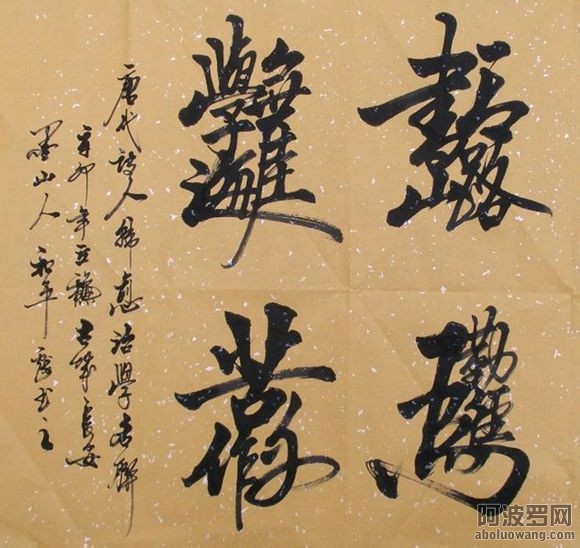 書山有路
勤為徑
學海無涯
苦作舟
唐代詩人韓愈治學名聯
辛卯年穐古城長安
山人和平書
阿波罗网
aboluowang.com